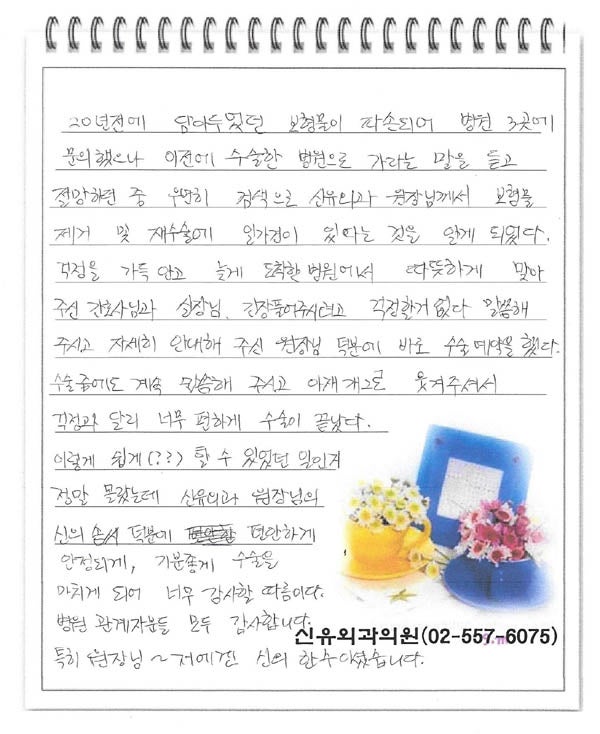 20년전에 담아두었던 보형물이 파손되어 병원 3곳에
문의했으나 이전에 수술한 병원으로 가라는 말을 듣고
절망하던 중 우연히 검색으로 신유외과 원장님께서 보형물
제거 및 재수술에 일가견이 있다는 것을 알게 되었다.
걱정을 가득 안고 늦게 도착한 병원에서 따뜻하게 맞아
주신 간호사님과 실장님, 긴장풀어주시려고 걱정할거 없다 말씀해
주시고 자세히 안내해 주신 원장님 덕분에 바로 수술예약을 했다.
수술중에도 계속 말씀해 주시고 아재개그로 웃겨주셔서
걱정과 달리 너무 편하게 수술이 끝났다.
이렇게 쉽게(??) 할 수 있었던 일인지
정말 몰랐는데 신유외과 원장님의
신의 손 덕분에 편안하게
안정되게, 기분좋게 수술을
마치게 되어 너무 감사할 따름이다.
병원 관계자분들 모두 감사합니다.
신유외과의원(02-557-6075)
특히 원장님~저에겐 신의 한수이셨습니다.